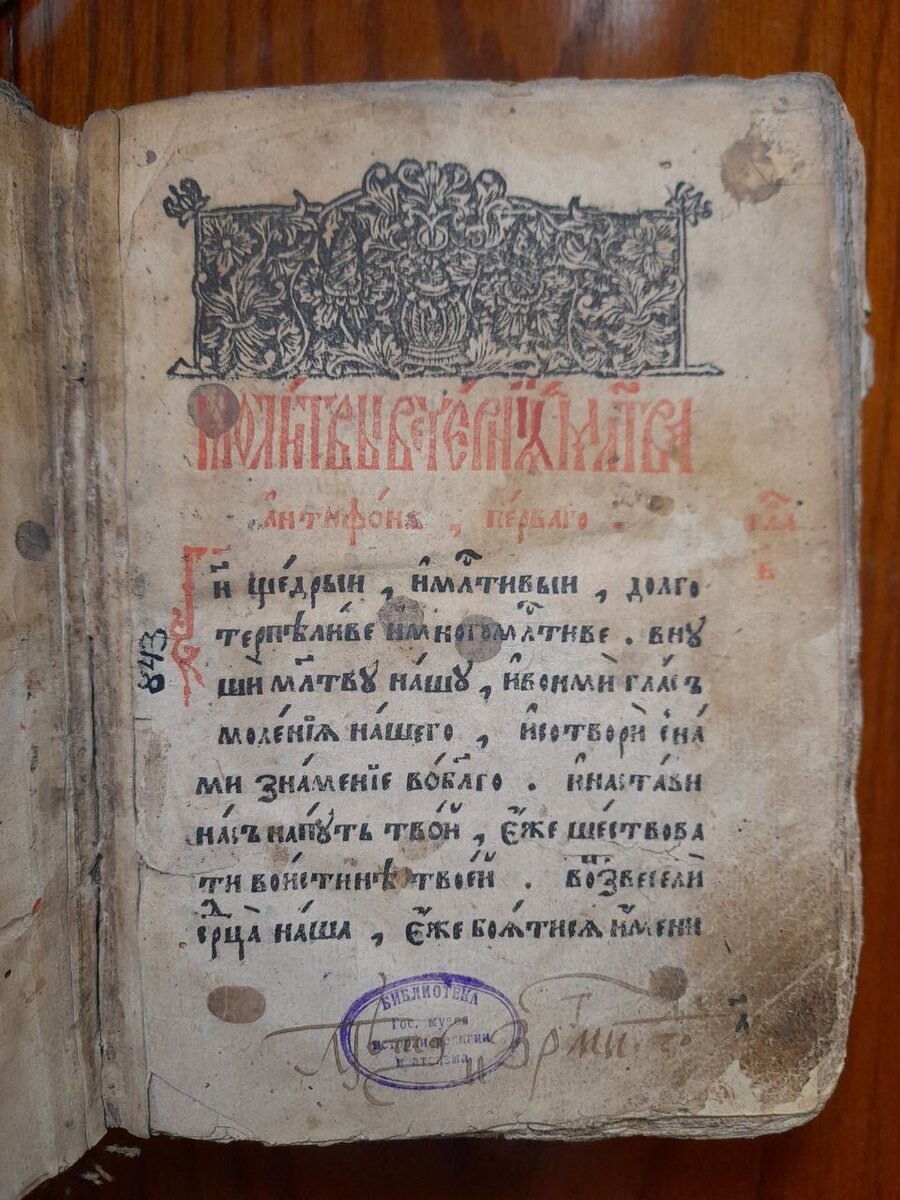 моли́твы вече́рнїѧ҆ мл҃тва
а҆нтифо́на , пе́рваго .
гла
в҃
Гдⷭ҇и ще́дрыи , и҆мл҇тивыи , долго
терпѣли́ве и҆многомл҇тиве . вну
шѝ мл҃тву на́шу , и҆воимѝ гла́съ
моле́нїѧ на́шего , и҆сотворѝ сна́
ми зна́менїе во́бл҃го . и҆наста́ви
на́съ напу́ть тво́й , є҆́же ше́ствова
ти вои́стинѣ твое́й . возвеселѝ
срⷣца̀ на́ша , є҆́же боѧ́тисѧ и҆́мени
а҃
843
БИБЛИОТЕКА
Гос. музея
истории религии
и атеизма